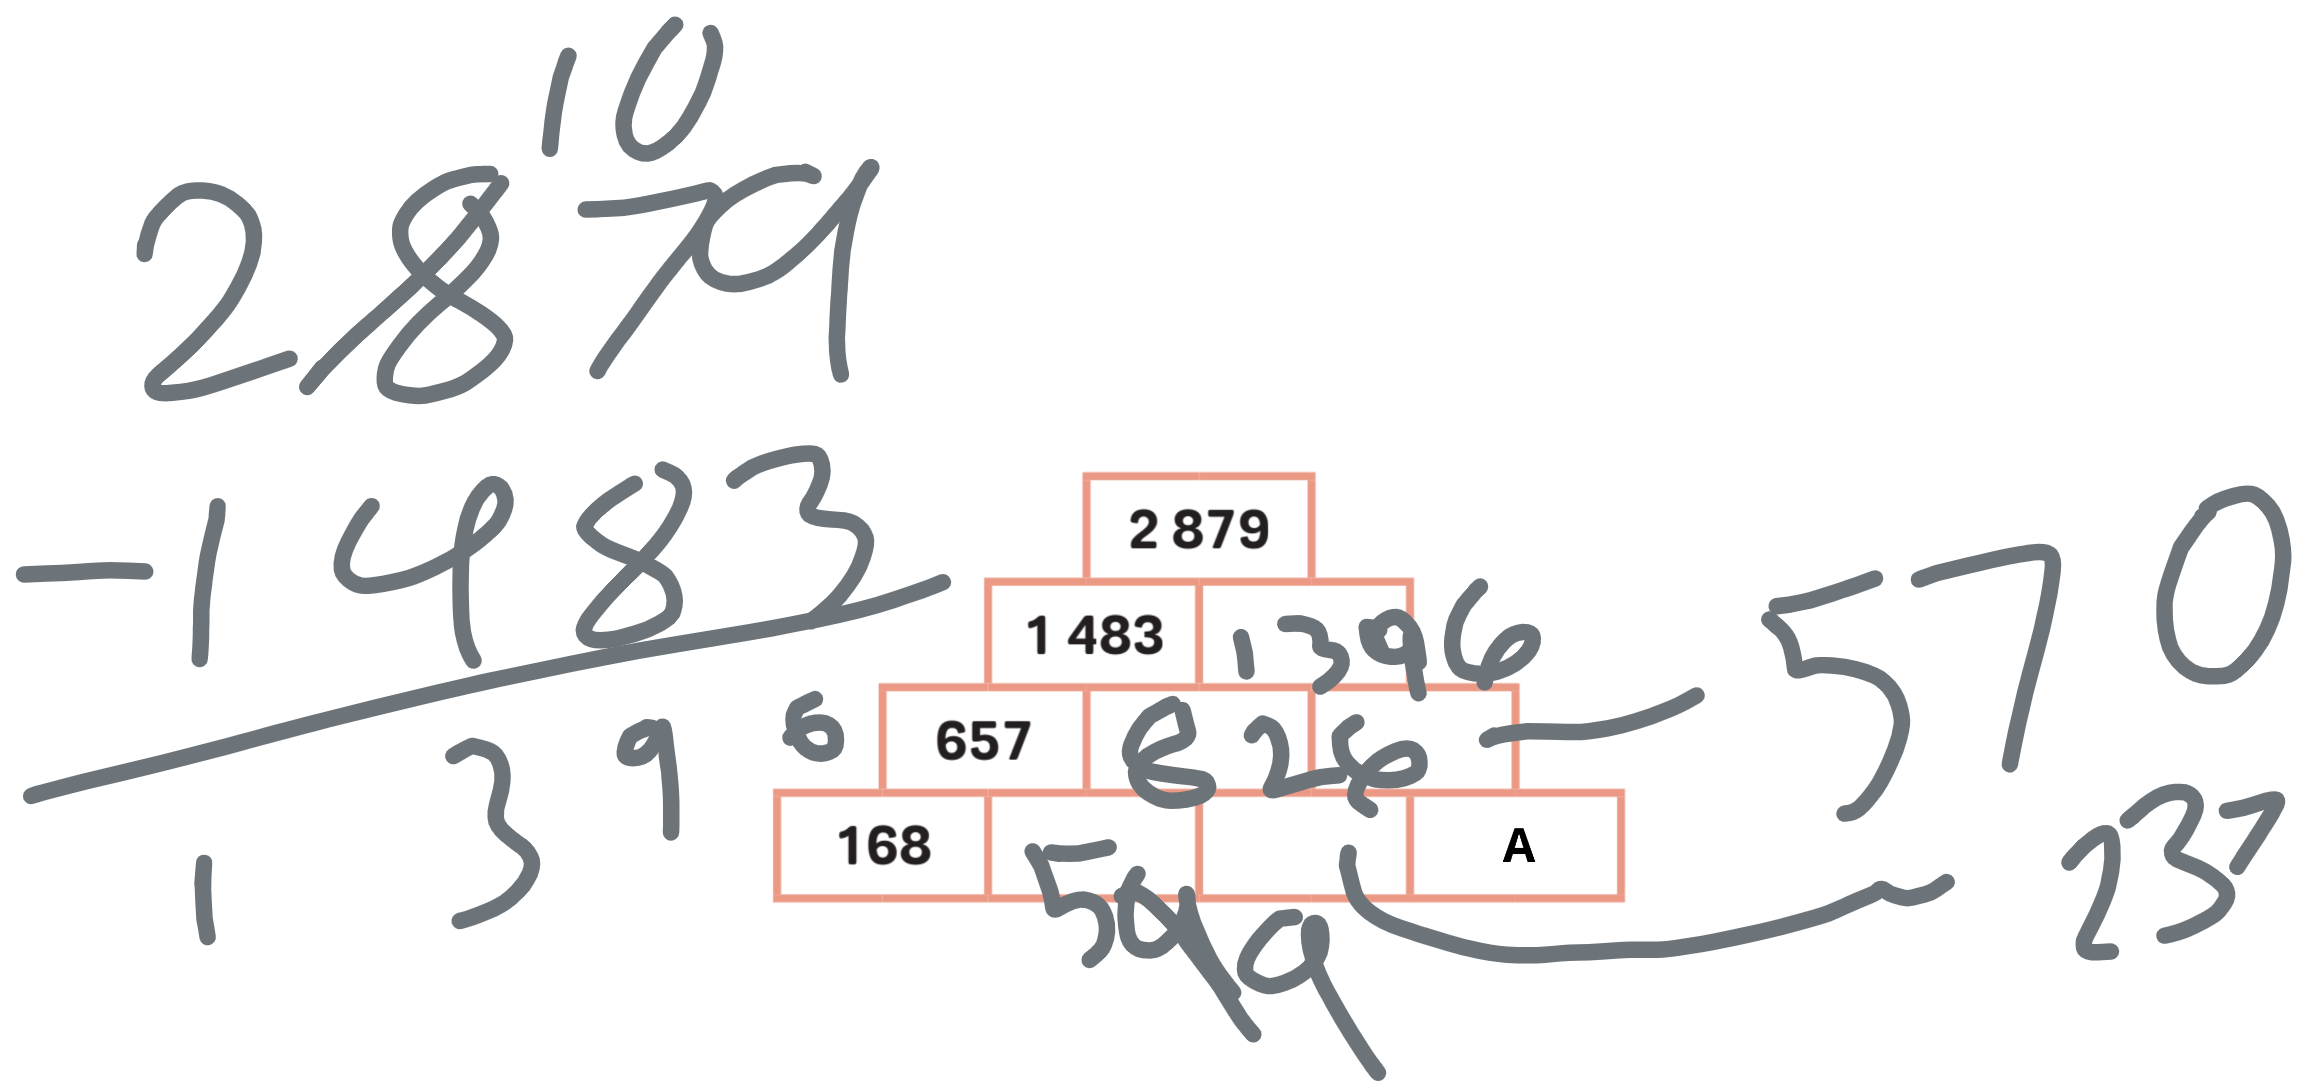 10
2879
-1483
1396
2 879
1 483 1396
657 826 - 570
168 A
237